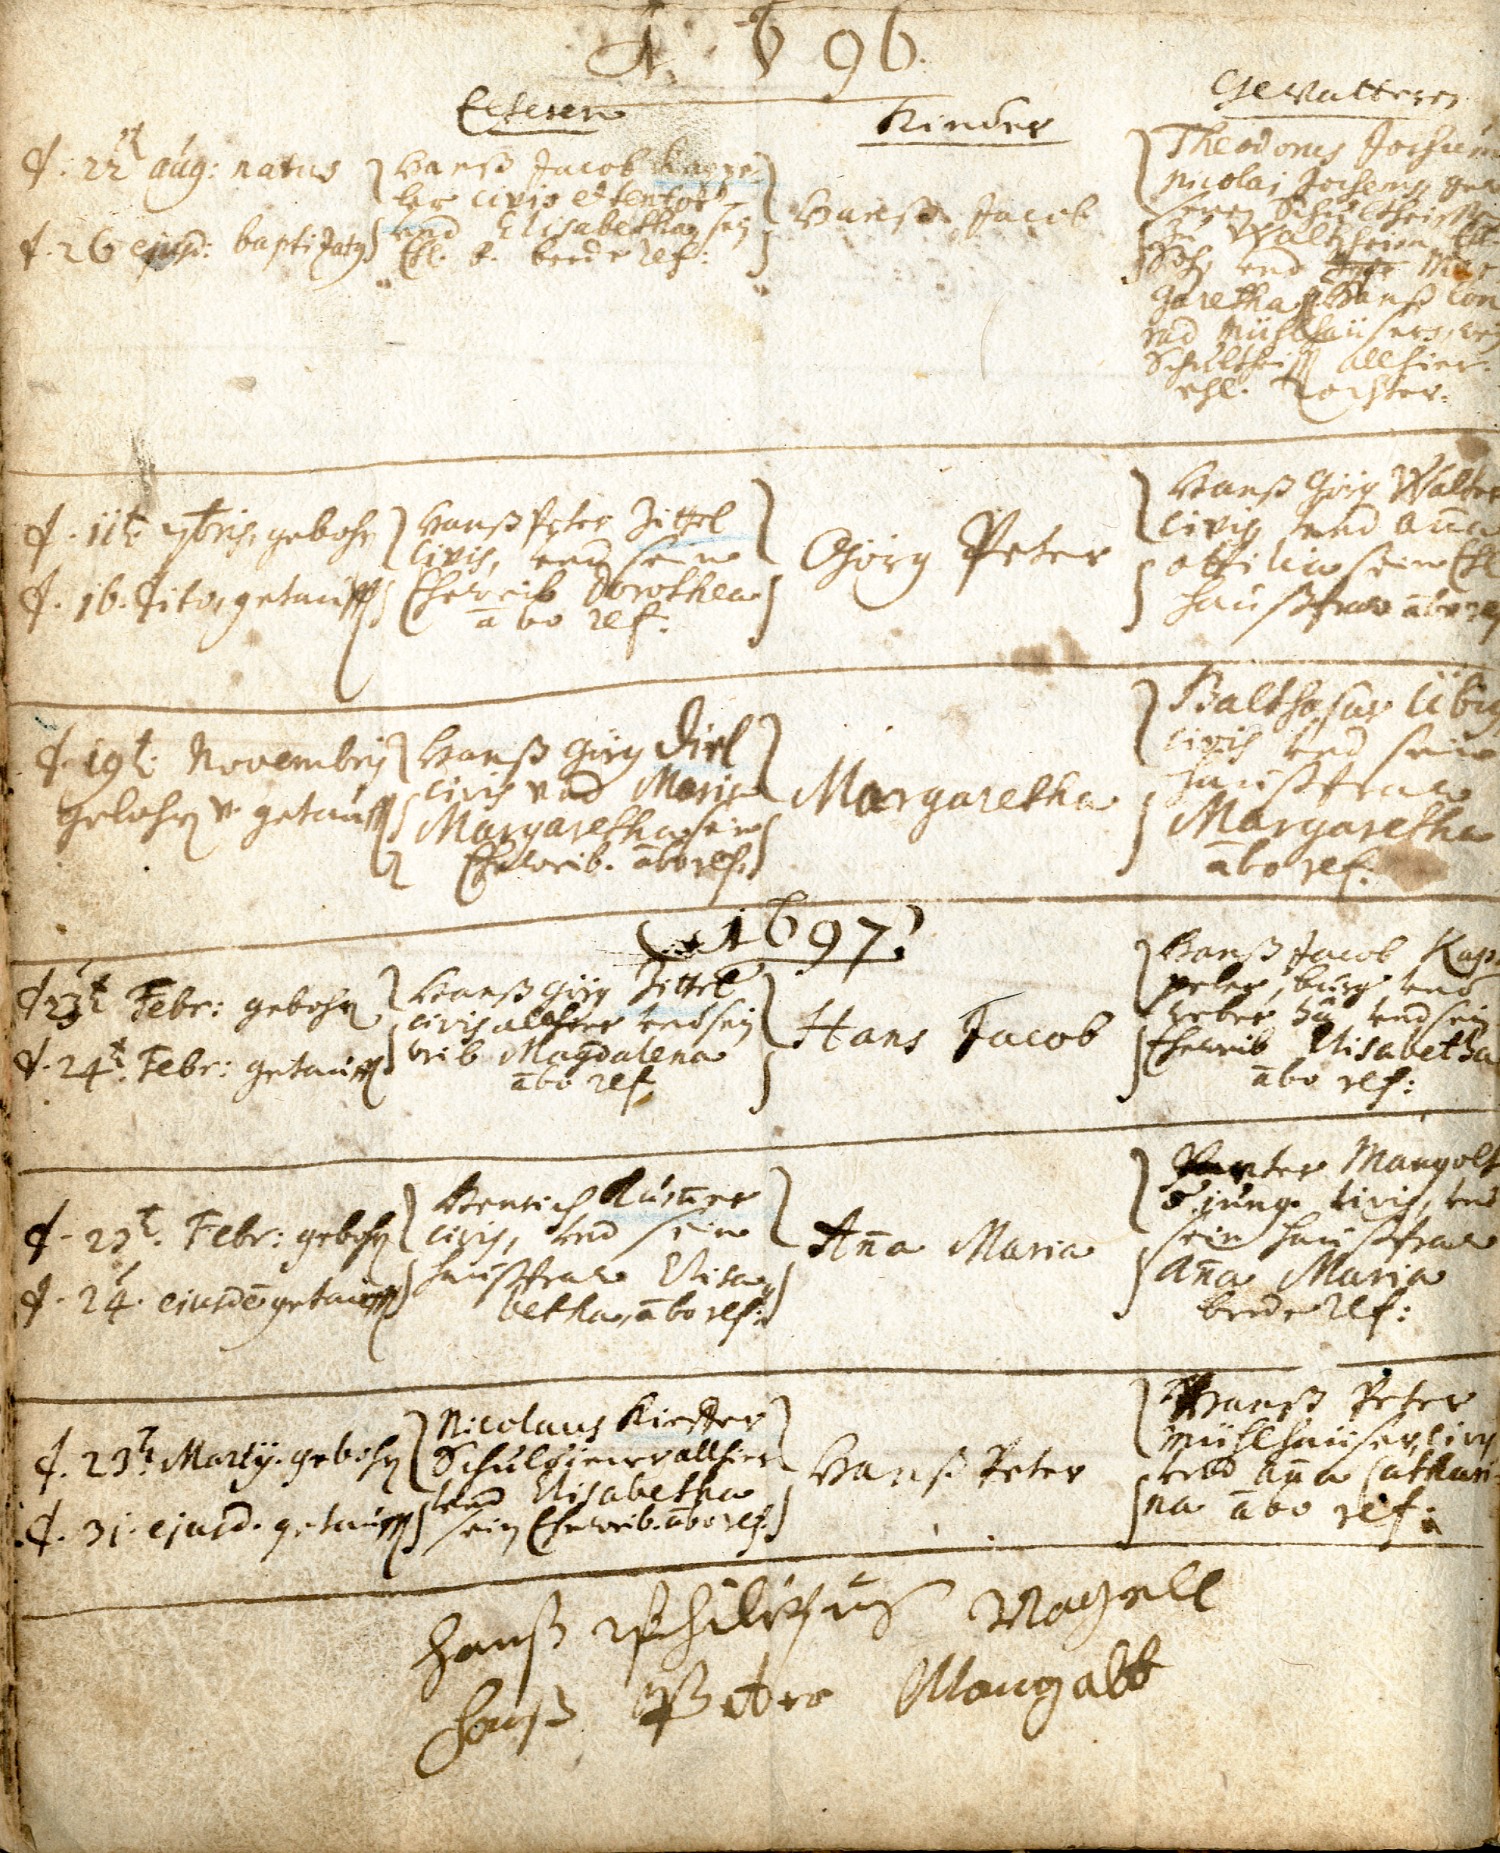 1696.
Elteren
Kinder
Gevatteren
d. 22t aug: natus
d. 26 ejusd: baptizatg
Hanß Jacob Kappe
ler civis et textor
und Elisabetha sein
Ehl. beede ref:
Hanß Jacob
Theodorus Jochum
Nicolai Jochems
Schultheissen
zu Waltzheim Ehl.
Sohn und Mar
garetha Hanß Con
rad Mühlhäusers,
Schultheiß allhier
ehl. Tochter.
d. 11t. 7bris, gebohrn
d. 16. dito, getaufft
Hanß Peter Zittel
civis, und sein
Eheweib Dorothea
ābo ref:
Görg Peter
Hanß Görg Walter
civis und Aña
Ottilia sein Ehl
haußfraw ābo ref
d. 19t. Novembris
gebohrn v. getaufft
Hanß Görg Diel
civis und Maria
Margaretha sein
Eheweib. ābo ref.
Margaretha
Balthasar Übig
civis und sein
haußfraw
Margaretha
ābo ref.
1697.
d. 23t Febr: gebohrn
d. 24t. Febr: getaufft
Hanß Görg Zittel
civis allhier und sein
weib Magdalena
ābo ref.
Hans Jacob
Hanß Jacob Kap
peler, burg. und
weber und sein
Eheweib Elisabetha
ābo ref:
d. 23t. Febr: gebohrn
d. 24. ejusdē getaufft
Henrich
civis, und sein
haußfraw Elisa
betha, ābo ref:
Aña Maria
Peter Mangolt
d. jung. civis, und
sein haußfraw
Aña Maria
beede ref:
d. 23t. Martij. gebohrn
d. 31. ejusd. getaufft
Nicolaus Kieffer
Schuldiener allhier
und Elisabetha
sein Eheweib. ābo ref.
Hanß Peter
Hanß Peter
Mühlhäuser, civis
und Aña Cathari
na ābo ref:
Hanß Philippus Nagell
Hanß Peter Mangalt